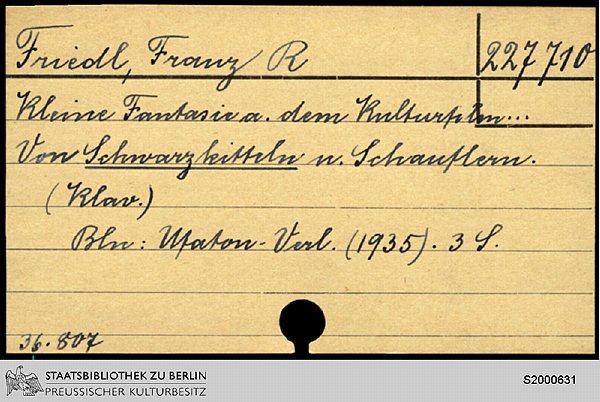 Friedl, Franz R
227 710
Kleine Fantasie a. dem Kulturfilm...
Von Schwarzkitteln u. Schauflern.
(Klav.)
Bln: Ufaton-Verl. (1935). 3 S.
36.807
STAATSBIBLIOTHEK ZU BERLIN
PREUSSISCHER KULTURBESITZ
S2000631